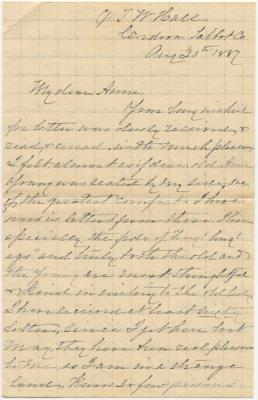 c/o T. W. Hall
Cordova Talbot Co.
Aug 30th 1887
My dear Anne
Your long wished
for letter was duly received &
read & reread with much pleasure
I felt almost as if dear old Anne
was seated by my side, one
of the greatest comforts I have
now is letters from those
specialy the folks of "lang lang
ago" and truly both the old and
the young are most thoughtful
& kind in writing to the old lady
I have received at least
letters since I got here last
May, they have been real pleasure
to me, as I am in a strange
land, Know so few persons